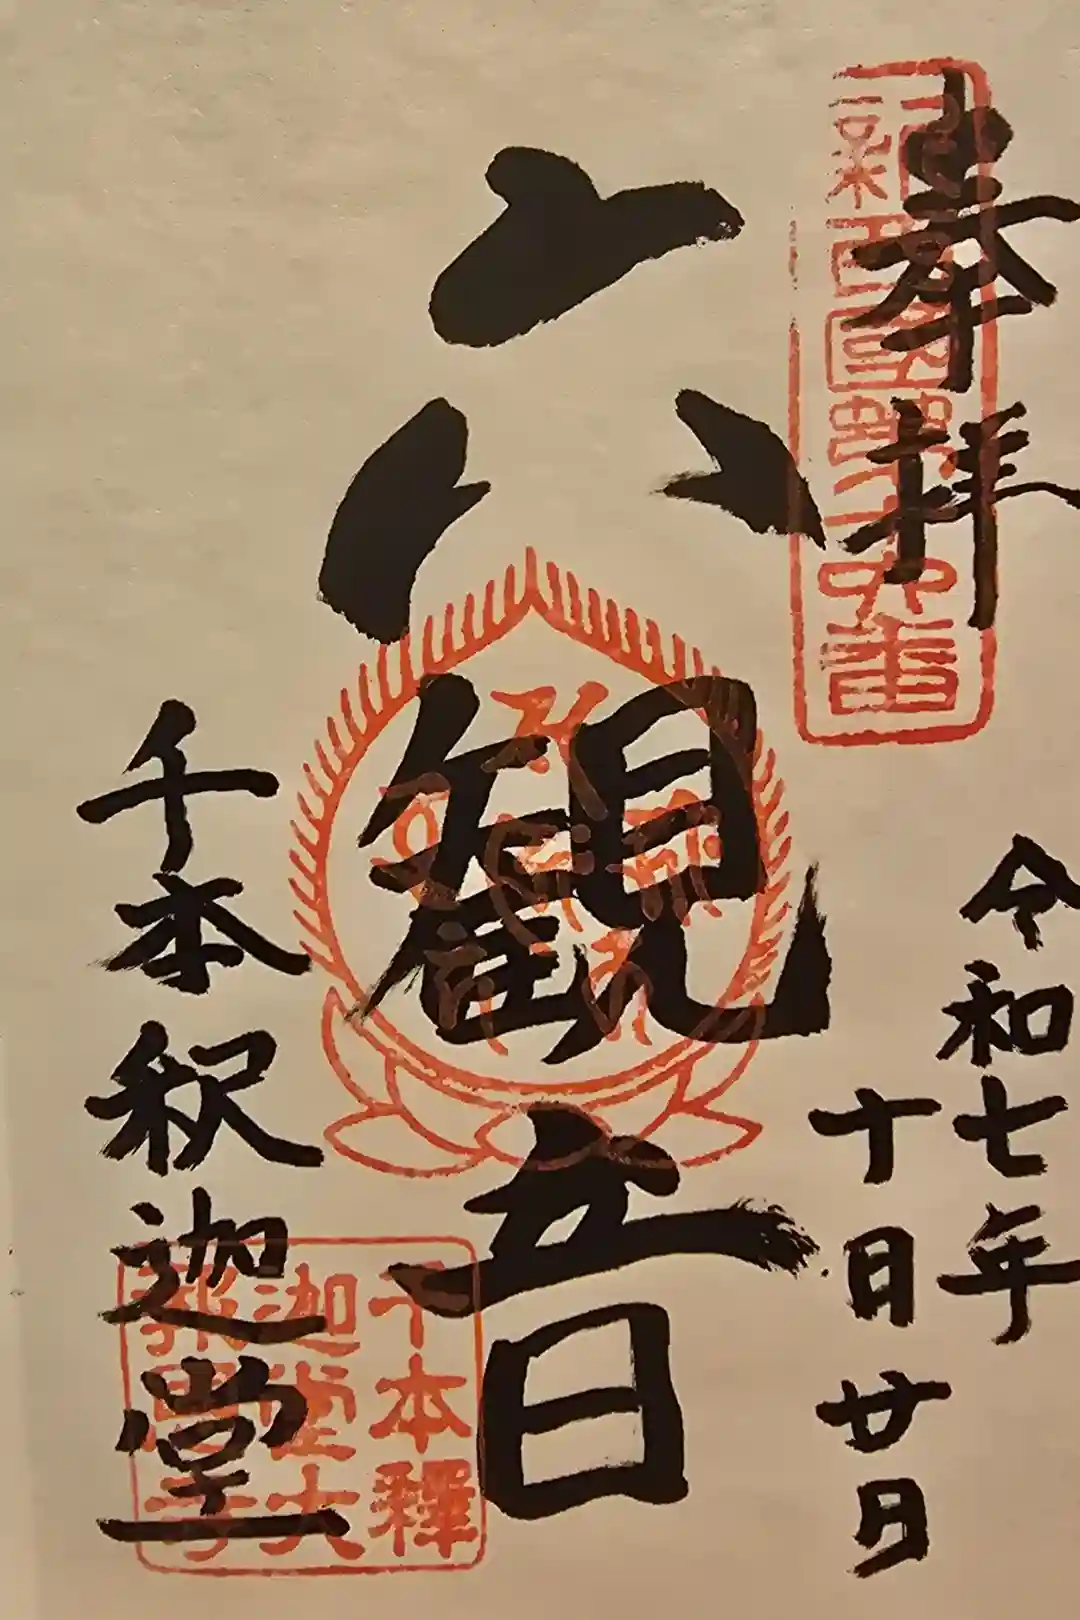 奉拝
新西國第十六番
令和七年
十日廿日
六観音
千本釈迦堂
千本釋
迦堂大
報恩寺